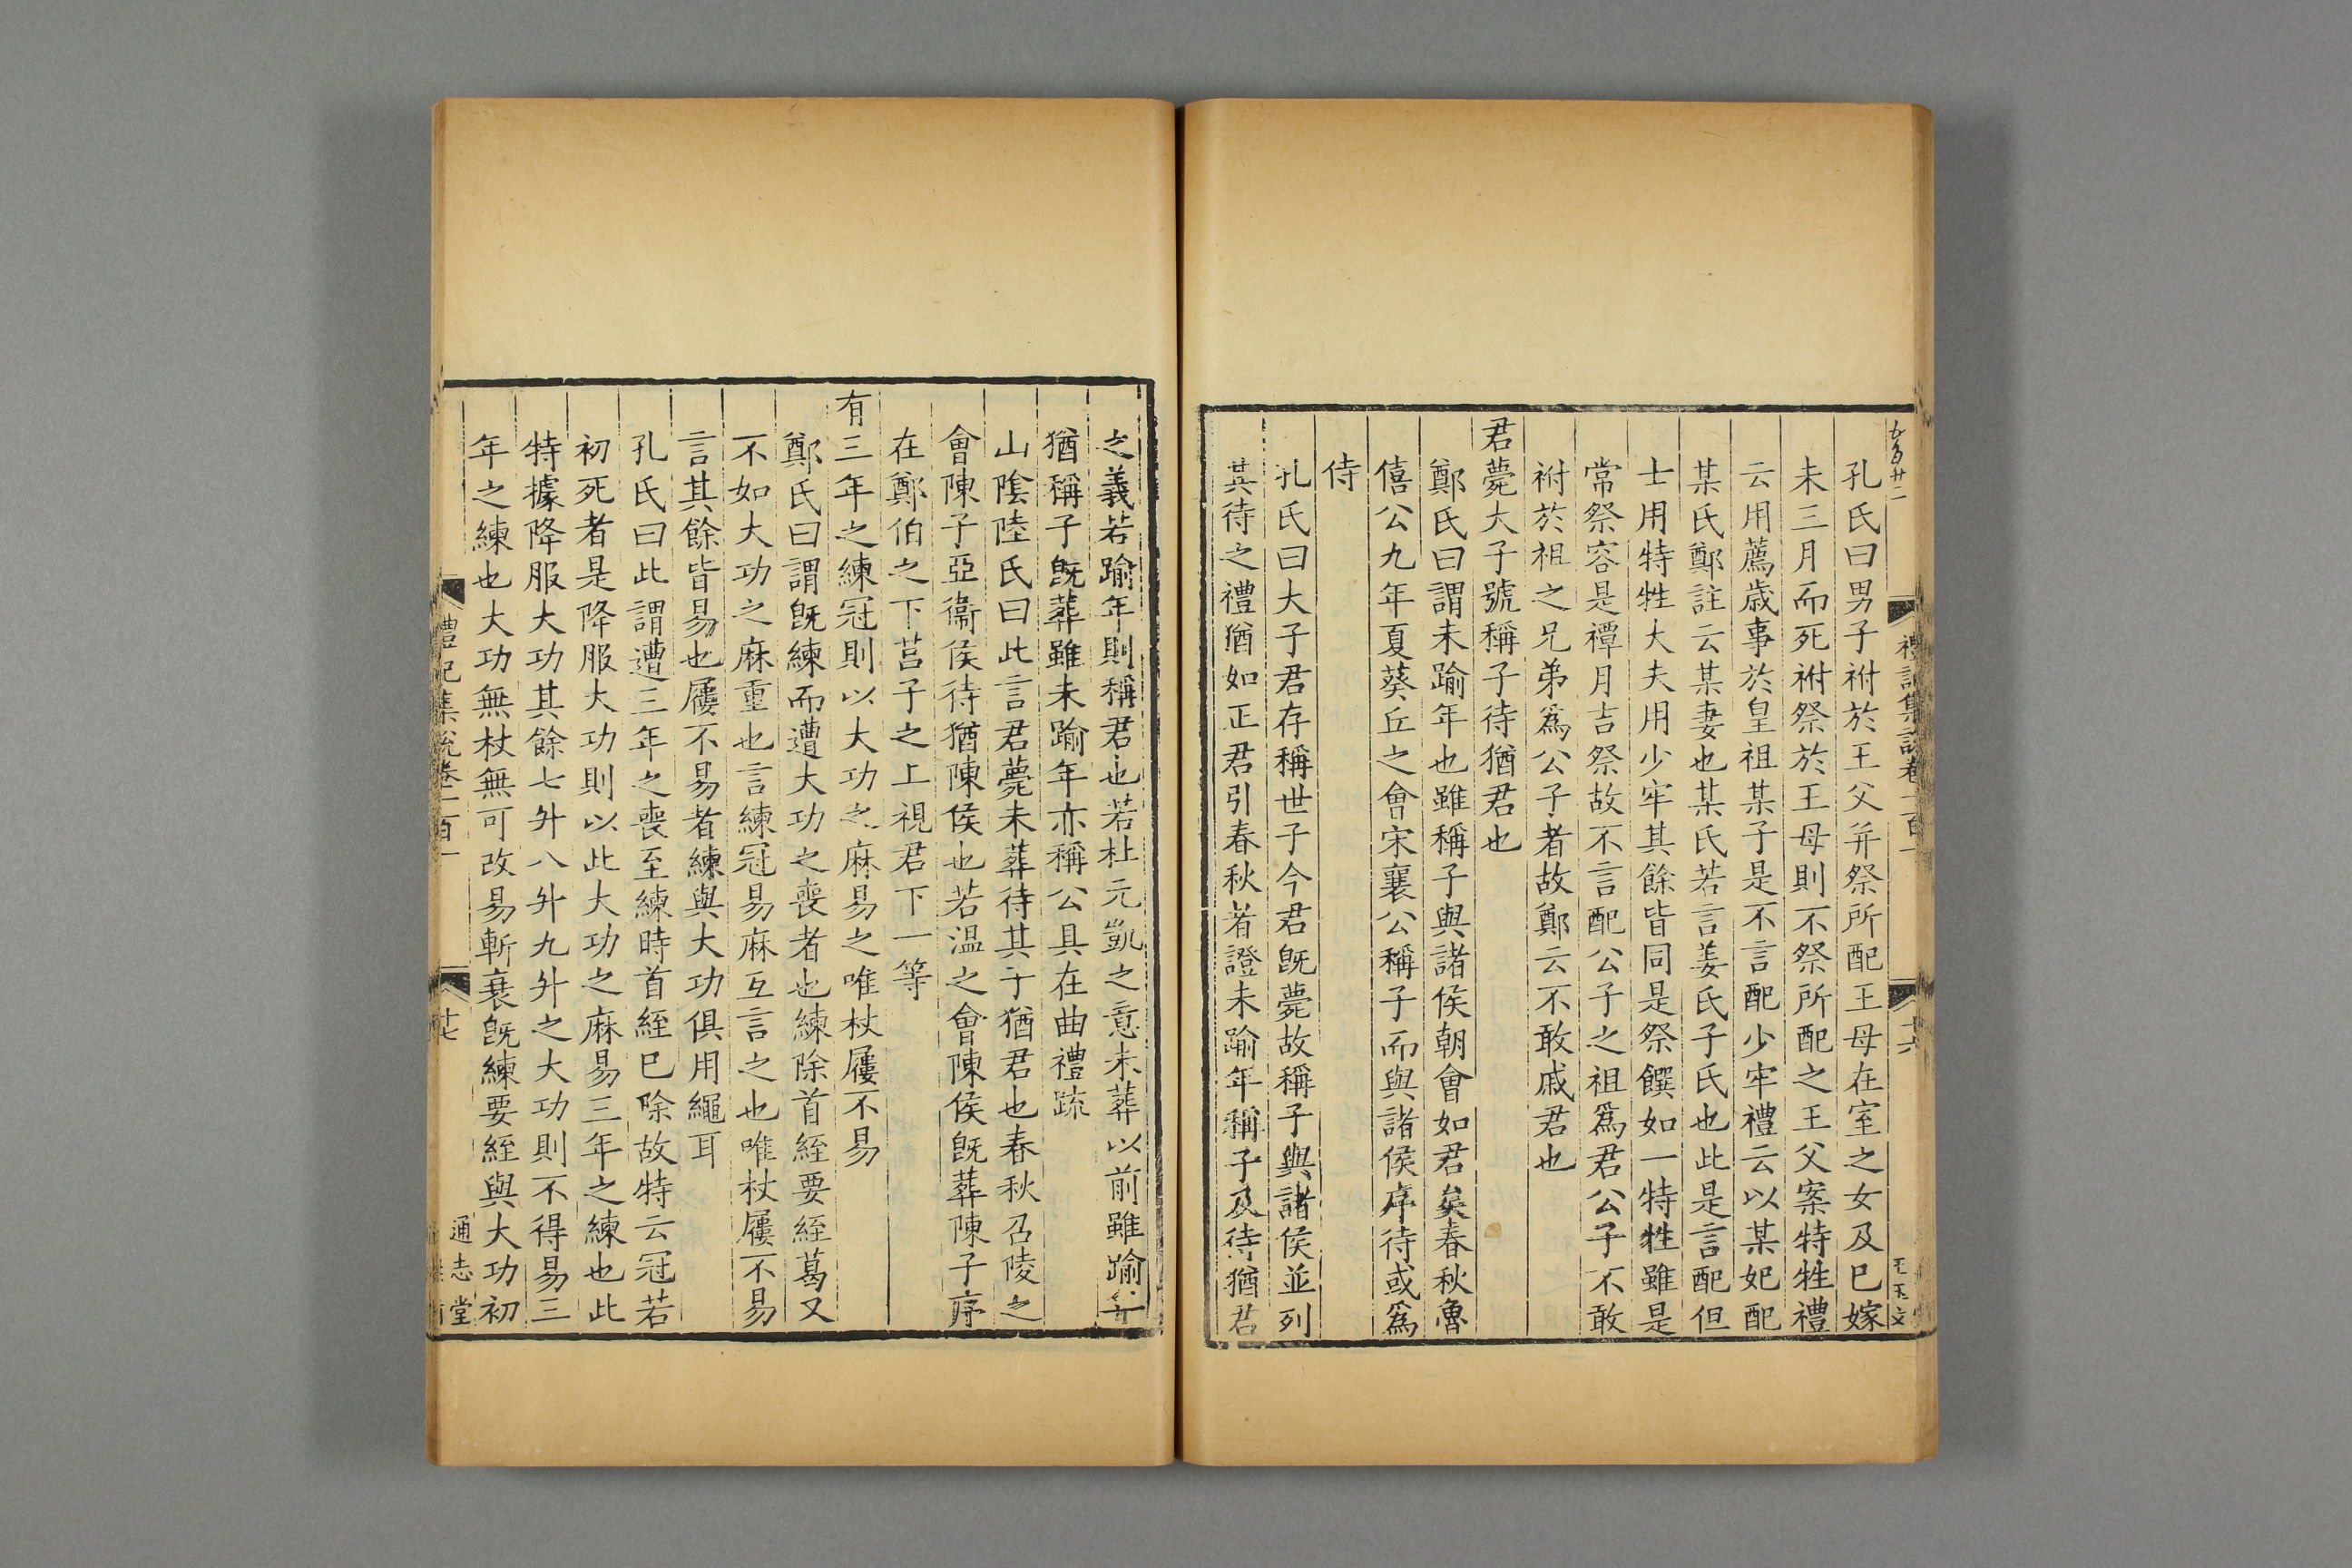 禮記集說卷一百一
十六
孔氏曰男子祔於王父并祭所配王母在室之女及巳嫁
未三月而死祔祭於王母則不祭所配之王父案特牲禮
云用薦歳事於皇祖某子是不言配少牢禮云以某妃配
某氏鄭註云某妻也某氏若言姜氏子氏也此是言配但
士用特牲大夫用少牢其餘皆同是祭饌如一特牲雖是
常祭容是禫月吉祭故不言配公子之祖爲君公子不敢
祔於祖之兄弟爲公子者故鄭云不敢戚君也
君薨大子號稱子待猶君也
鄭氏曰謂未踰年也雖稱子與諸侯朝會如君矣春秋魯
僖公九年夏葵丘之會宋襄公稱子而與諸侯序待或爲
侍
孔氏曰大子君存稱世子今君旣薨故稱子與諸侯並列
其待之禮猶如正君引春秋者證未踰年稱子及待猶君
之義若踰年則稱君也若杜元凱之意未葬以前雖踰年
猶稱子旣葬雖未踰年亦稱公具在曲禮疏
山陰陸氏曰此言君薨未葬待其子猶君也春秋召陵之
會陳子亞衞侯待猶陳侯也若温之會陳侯旣葬陳子序
在鄭伯之下莒子之上視君下一等
有三年之練冠則以大功之麻易之唯杖屨不易
鄭氏曰謂旣練而遭大功之喪者也練除首絰要絰葛又
不如大功之麻重也言練冠易麻互言之也唯杖屨不易
言其餘皆易也屨不易者練與大功俱用繩耳
孔氏曰此謂遭三年之喪至練時首絰巳除故特云冠若
初死者是降服大功則以此大功之麻易三年之練也此
特據降服大功其餘七升八升九升之大功則不得易三
年之練也大功無杖無可改易斬衰旣練要絰與大功初
禮記集說卷一百一
十七
通志堂